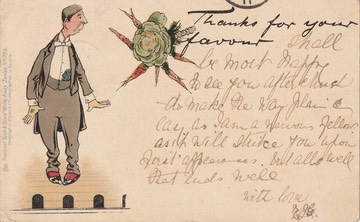 Thanks for your
favour Shall
be most happy
to see you after
do make the way plain &
easy as I am a nervous fellow
as I will you upon
first appearance. but all's well
that ends well
with love